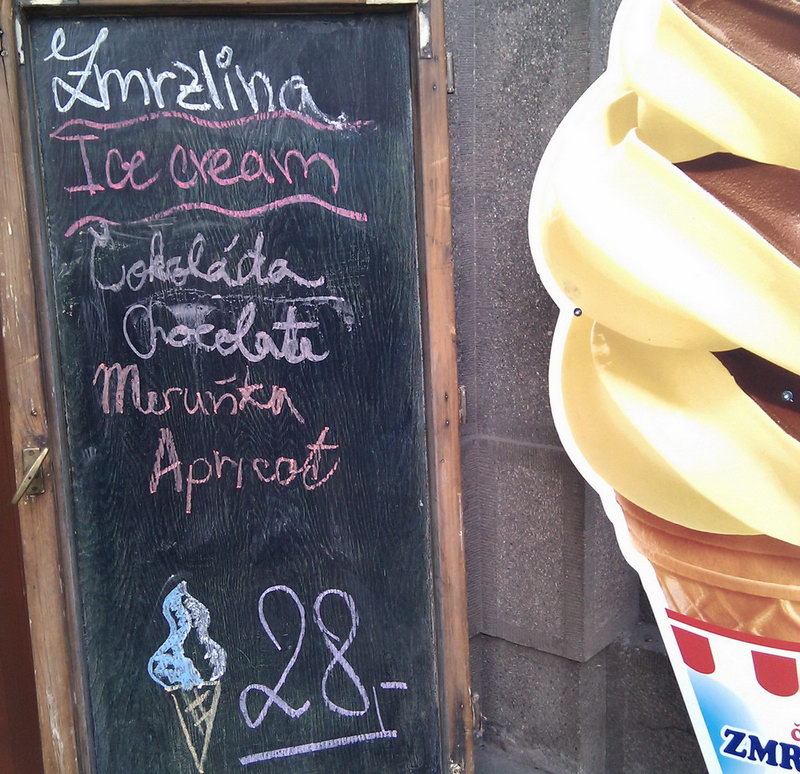 Zmrzlina
Ice cream
Čokoláda
Chocolate
Meruňka
Apricot
28,-
ZMR